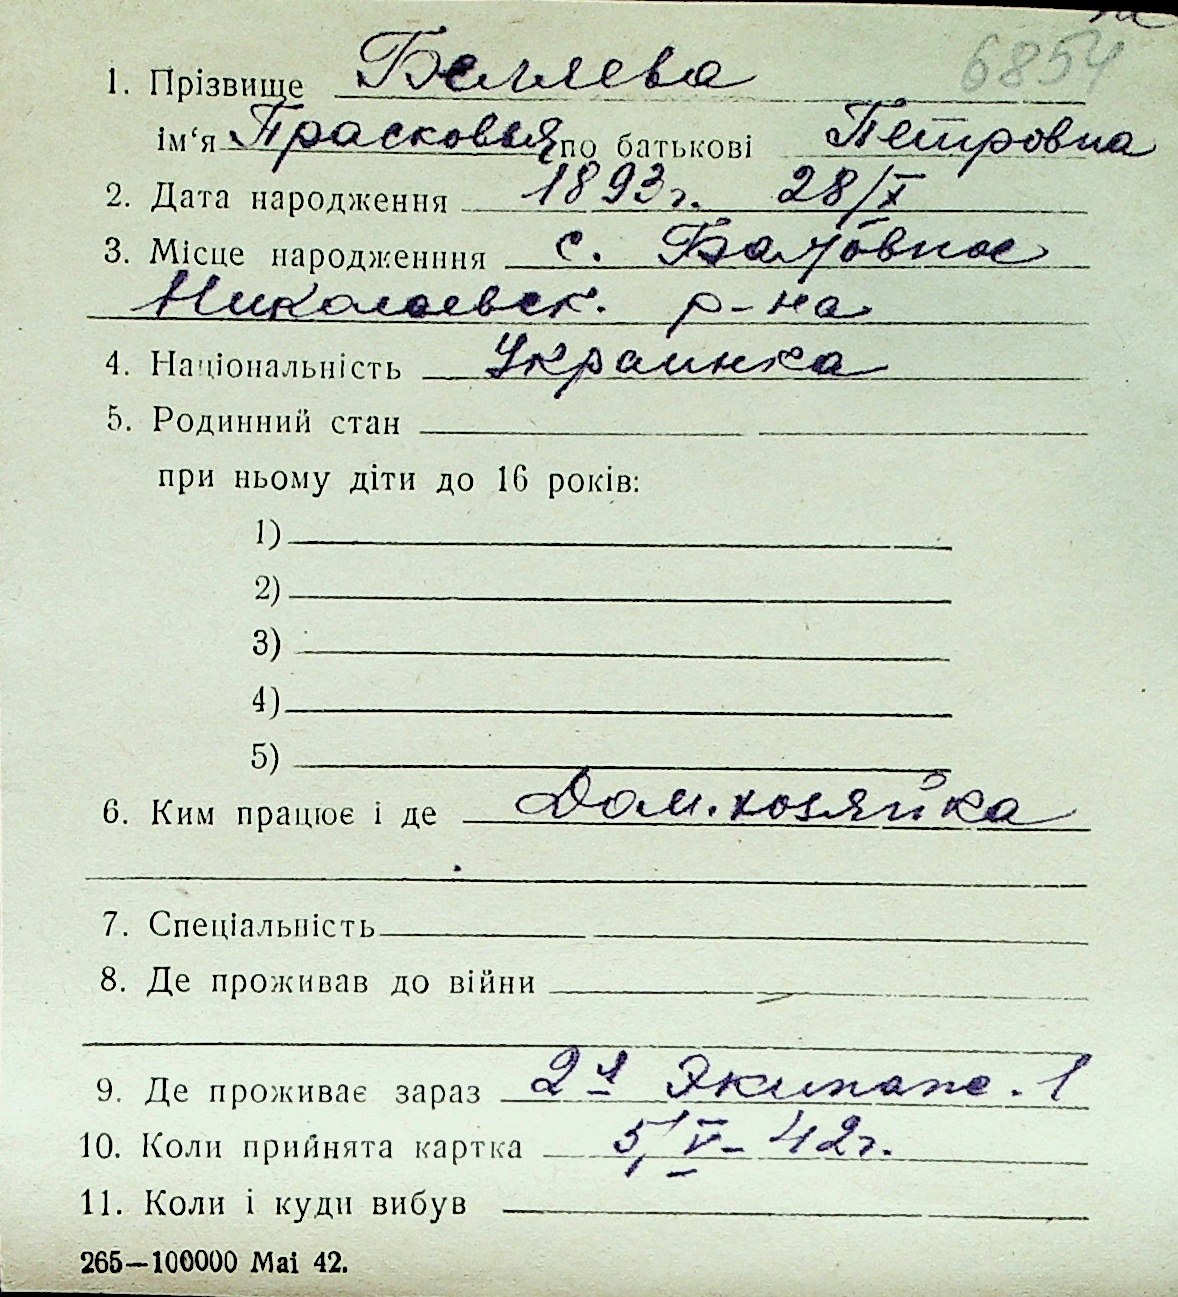 6854
1. Прізвище Беляева
ім‘я Прасковья по батькові Петровна
2. Дата народження 1893г. 28/X
3. Місце народженння с. Баловное
Николаевск. р-на
4. Національність Украинка
5. Родинний стан
при ньому діти до 16 років:
1)
2)
3)
4)
5)
6. Ким працює і де Дом. хозяйка
7. Спеціальність
8. Де проживав до війни
9. Де проживає зараз 2я Экипажн. 1
10. Коли прийнята картка 5/V-42г.
11. Коли і куди вибув
265—100000 Маі 42.